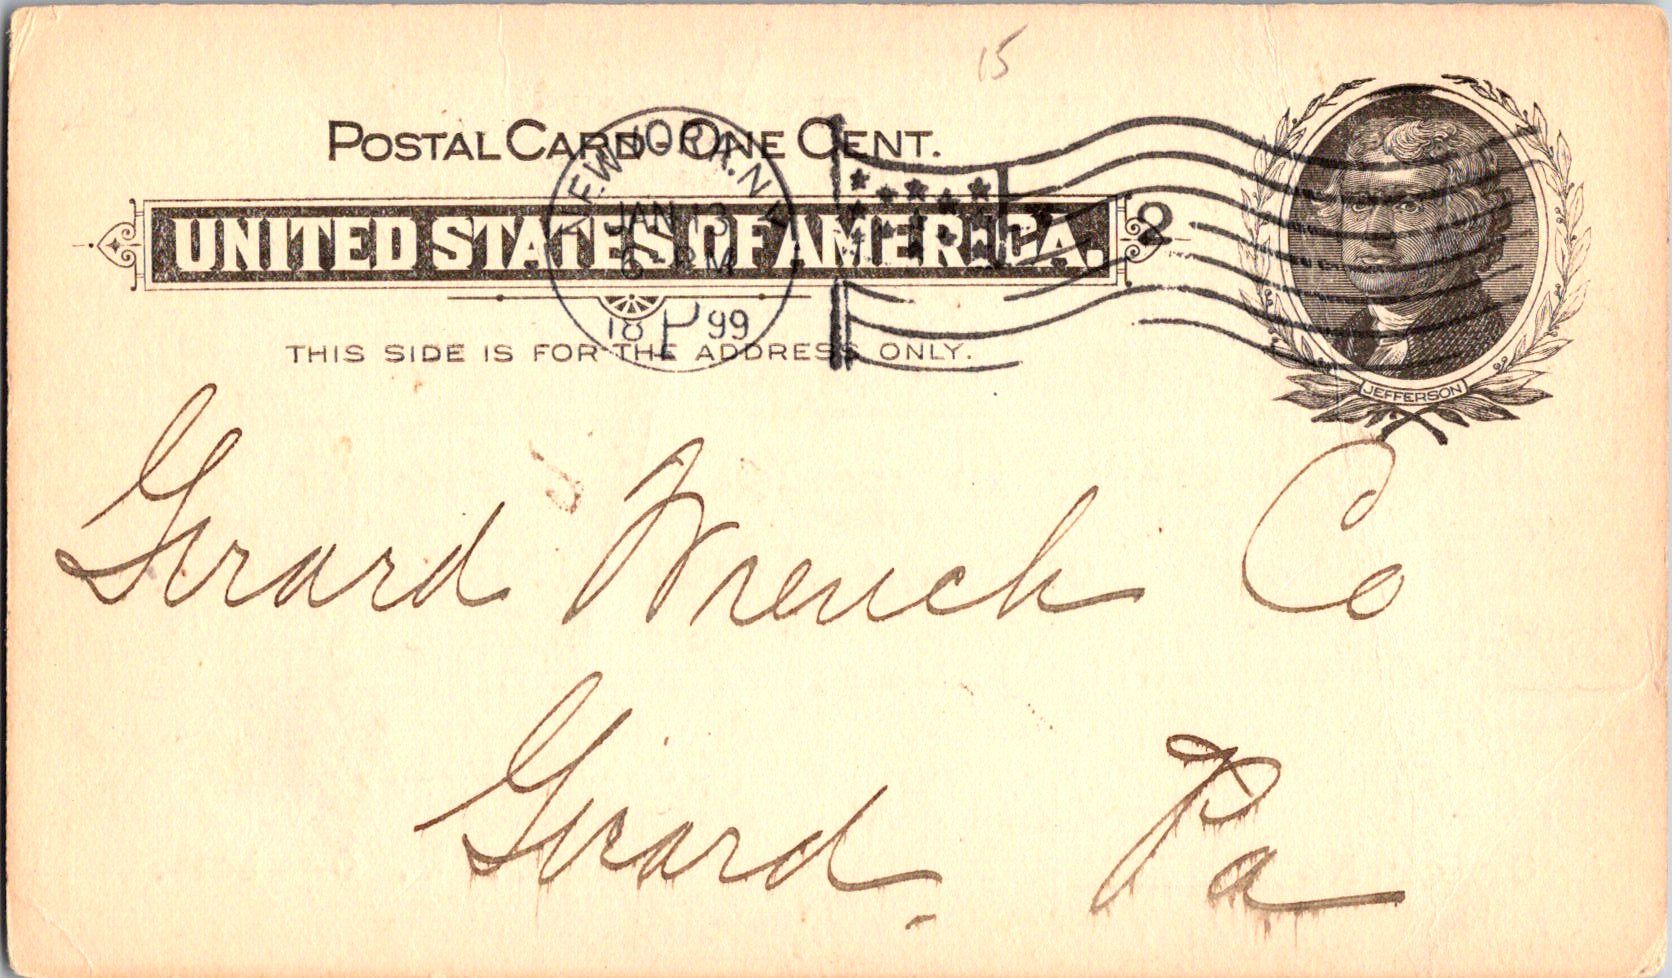 15
POSTAL CARD - ONE CENT.
UNITED STATES OF AMERICA.
THIS SIDE IS FOR THE ADDRESS ONLY.
NEW YORK, N.Y.
JAN 13
6 - PM
18 99
8
JEFFERSON
Girard Wrench Co
Girard, Pa